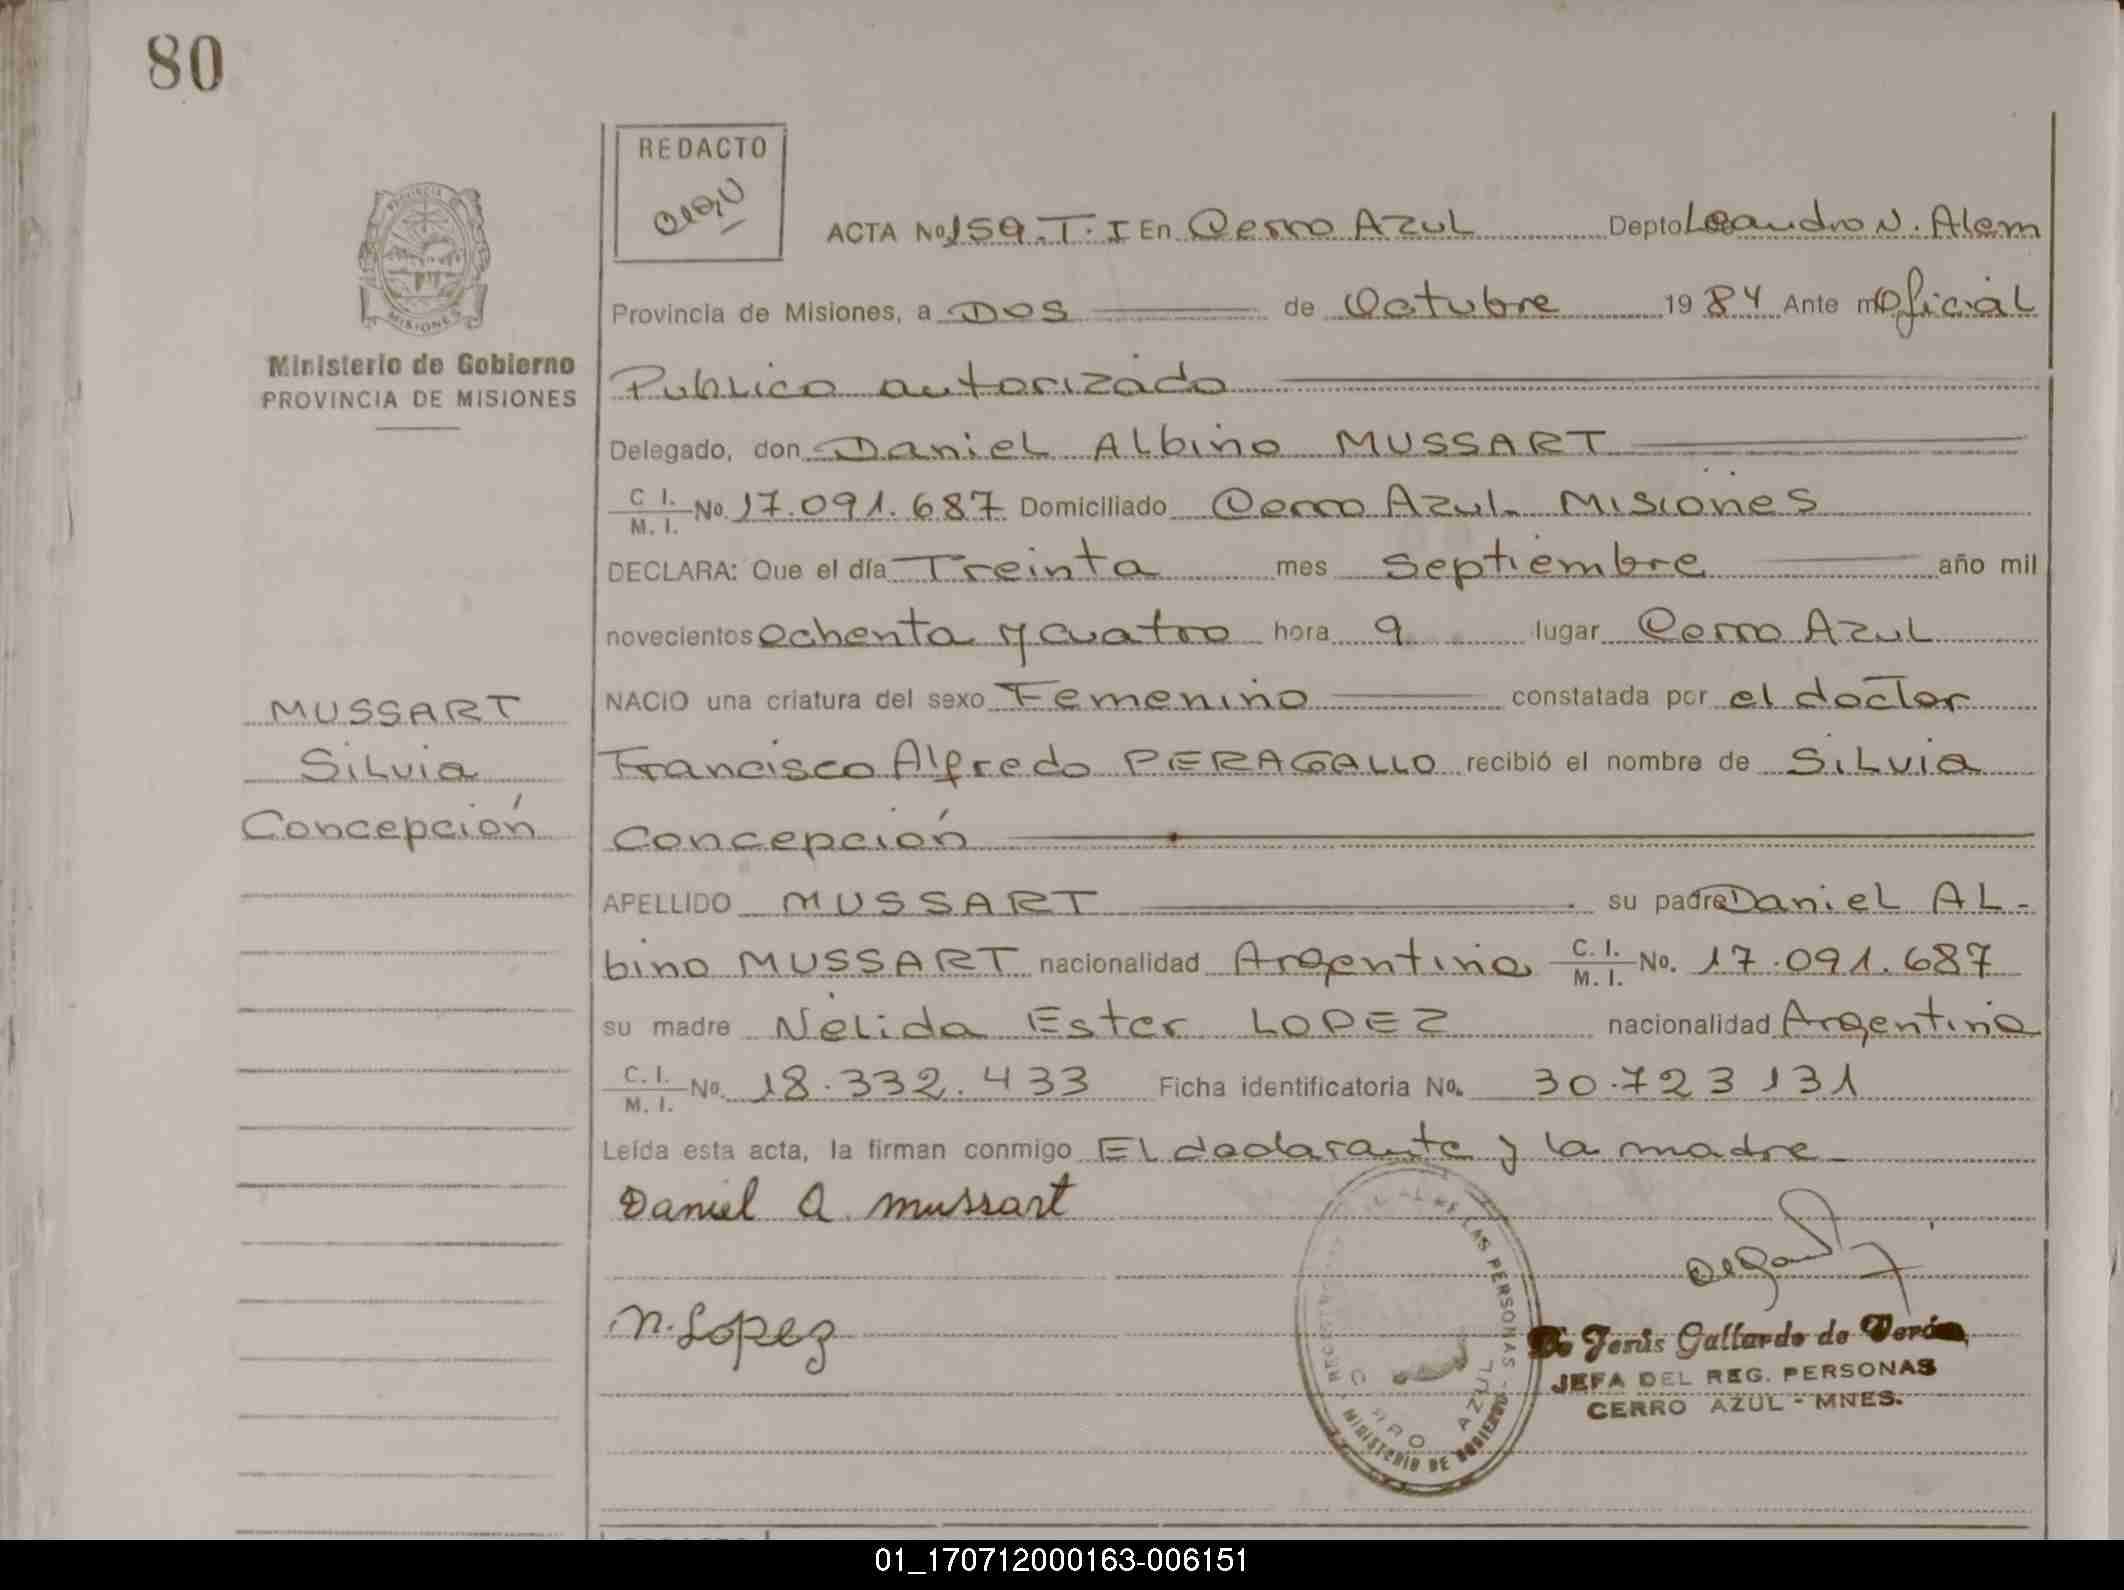 80
REDACTO
PROVINCIA
MISIONES
Ministerio de Gobierno
PROVINCIA DE MISIONES
ACTA No 159. T. I En Cerro Azul Depto Leandro N. Alem
Provincia de Misiones, a Dos de Octubre 1984 Ante mí Oficial
Publico autorizado
Delegado, don Daniel Albino MUSSART
C. I. / M. I. No. 17.091.687 Domiciliado Cerro Azul Misiones
DECLARA: Que el día Treinta mes Septiembre año mil
novecientos ochenta y cuatro hora 9 lugar Cerro Azul
NACIO una criatura del sexo Femenino constatada por el doctor
Francisco Alfredo PERAGALLO recibió el nombre de Silvia
Concepción
MUSSART
Silvia
Concepción
APELLIDO MUSSART su padre Daniel AL-
bino MUSSART nacionalidad Argentina C. I. / M. I. No. 17.091.687
su madre Nélida Ester LOPEZ nacionalidad Argentina
C. I. / M. I. No. 18.332.433 Ficha identificatoria No. 30.723 131
Leída esta acta, la firman conmigo El declarante y la madre
Daniel A. Mussart
N. Lopez
DE LAS PERSONAS
CERRO AZUL
MINISTERIO DE GOBIERNO
Jesús Gallardo de Verón
JEFA DEL REG. PERSONAS
CERRO AZUL - MNES.
01_170712000163-006151